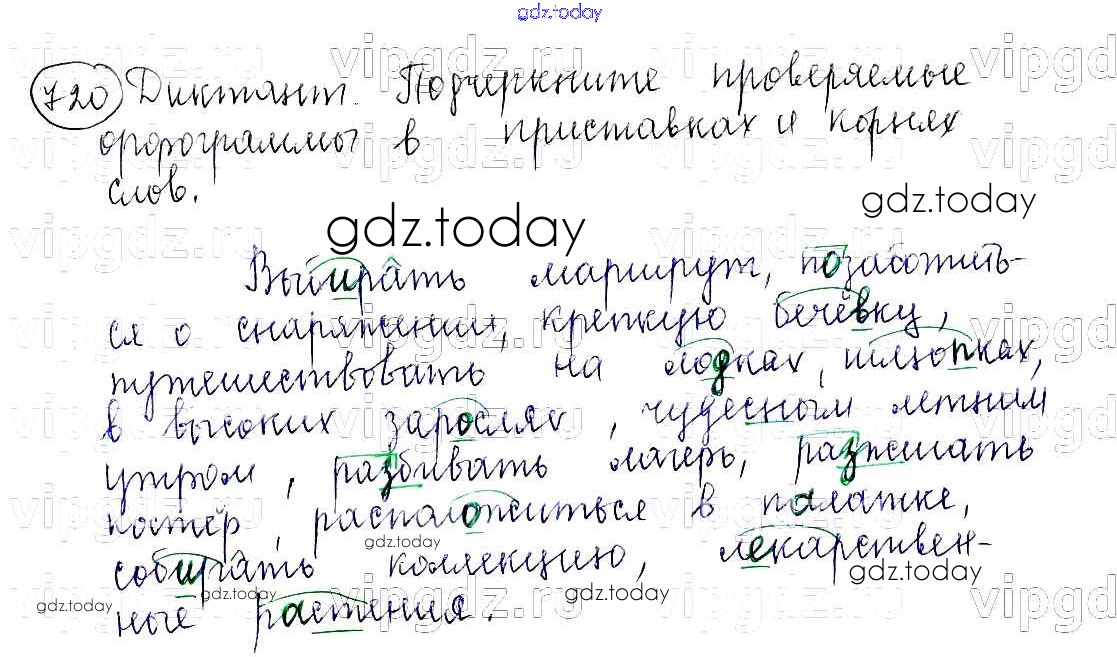 gdz.today
720 Диктант. Подчеркните проверяемые
орфограммы в приставках и корнях
слов.
gdz.today
gdz.today
Выбирать маршрут, позаботить-
ся о снаряжении, крепкую бечёвку,
путешествовать на лодках, шлюпках,
в высоких зарослях, чудесным летним
утром, разбивать лагерь, разжигать
костёр, расположиться в палатке,
gdz.today
собирать коллекцию, лекарствен-
gdz.today
ные растения.
gdz.today
gdz.today
vipgdz.ru